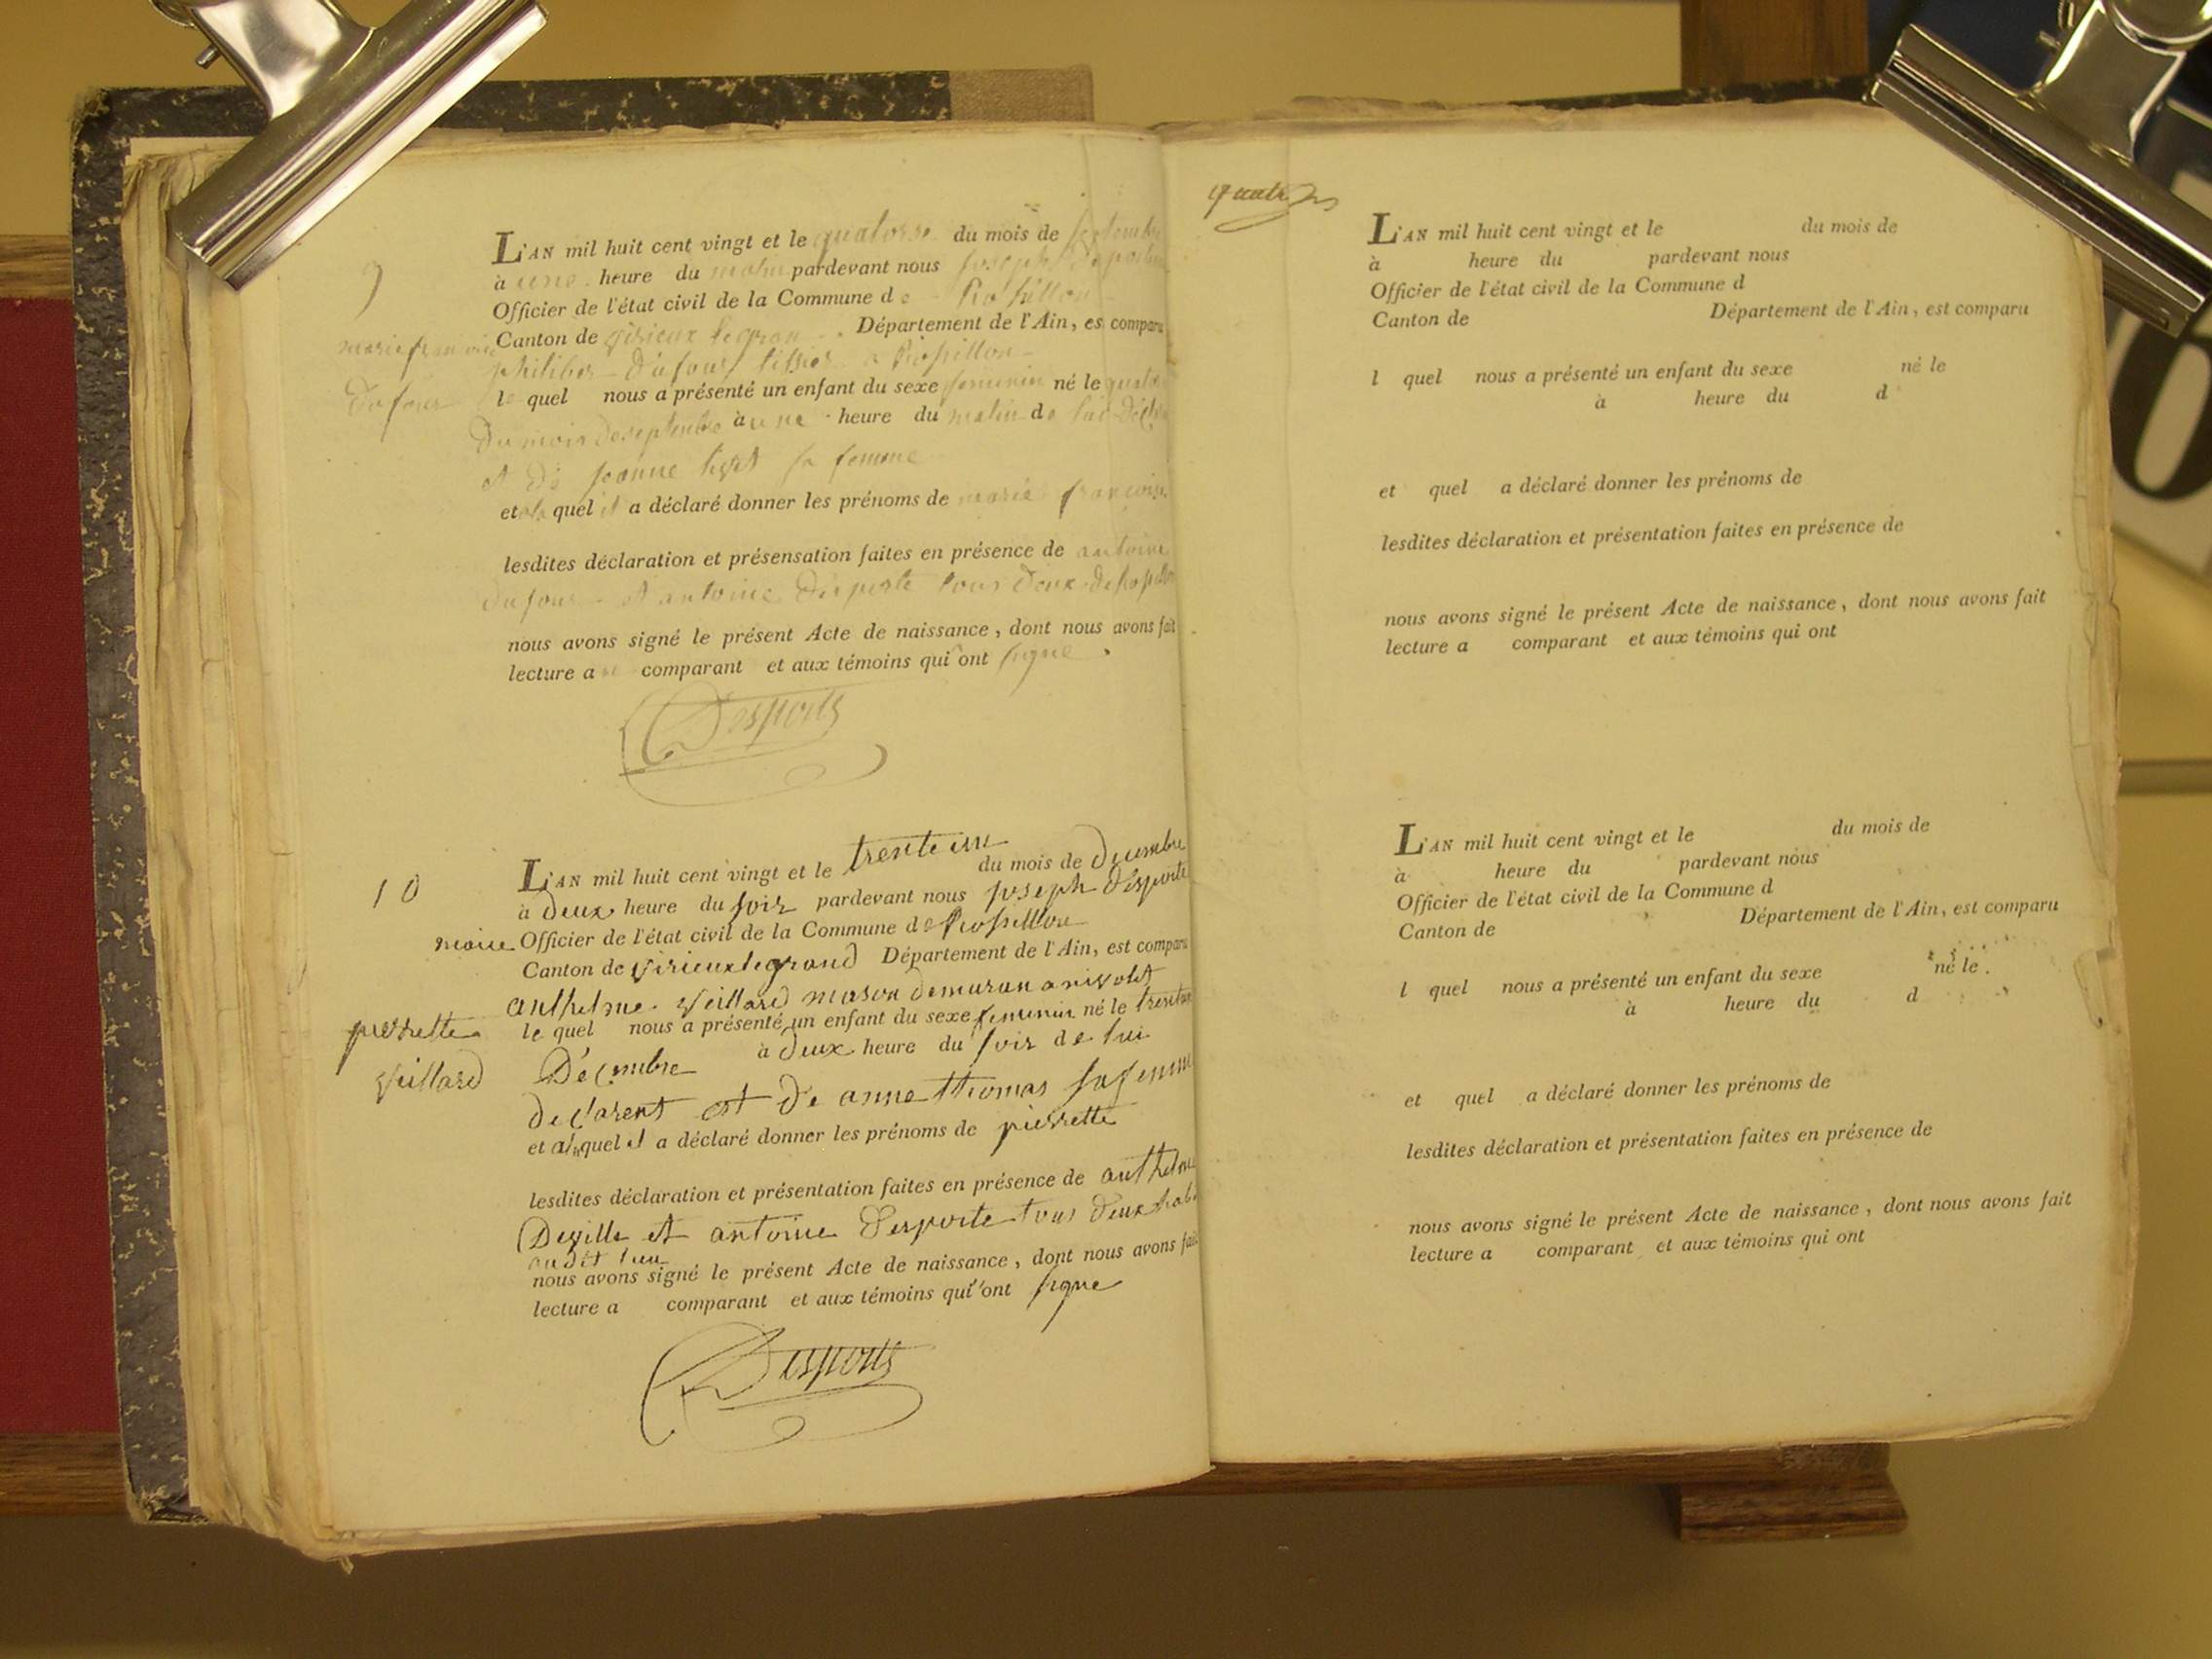 9
L'AN mil huit cent vingt et le quatorse du mois de septembre
à une heure du matin pardevant nous joseph desporte
Officier de l'état civil de la Commune de Rossillon
Canton de virieux legran Département de l'Ain, est comparu
marie francoise
philiber dufour tissier a Rossillon
dufour
le quel nous a présenté un enfant du sexe feminin né le
du mois de septembre à une heure du matin de
et de jeanne sa femme
et quel il a déclaré donner les prénoms de marie francoise
lesdites déclaration et présensation faites en présence de antoine
dufour et antoine desporte tous deux de Rossillon
nous avons signé le présent Acte de naissance, dont nous avons fait
lecture a comparant et aux témoins qui ont signe
Desporte
10
L'AN mil huit cent vingt et le trente un du mois de decembre
à deux heure du soir pardevant nous joseph desporte
maire Officier de l'état civil de la Commune de Rossillon
Canton de virieux legrand Département de l'Ain, est comparu
anthelme veillard mason
pierrette
le quel nous a présenté un enfant du sexe feminin né le
veillard
Décembre à deux heure du soir de lui
declarent et de anne thomas sa femme
et quel il a déclaré donner les prénoms de pierrette
lesdites déclaration et présentation faites en présence de anthelme
Deville et antoine Desporte tous deux
au dit lieu
nous avons signé le présent Acte de naissance, dont nous avons fait
lecture a comparant et aux témoins qui ont signe
Desporte
L'AN mil huit cent vingt et le du mois de
à heure du pardevant nous
Officier de l'état civil de la Commune d
Canton de Département de l'Ain, est comparu
l quel nous a présenté un enfant du sexe né le
à heure du d
et quel a déclaré donner les prénoms de
lesdites déclaration et présentation faites en présence de
nous avons signé le présent Acte de naissance, dont nous avons fait
lecture a comparant et aux témoins qui ont
L'AN mil huit cent vingt et le du mois de
à heure du pardevant nous
Officier de l'état civil de la Commune d
Canton de Département de l'Ain, est comparu
l quel nous a présenté un enfant du sexe né le
à heure du d
et quel a déclaré donner les prénoms de
lesdites déclaration et présentation faites en présence de
nous avons signé le présent Acte de naissance, dont nous avons fait
lecture a comparant et aux témoins qui ont